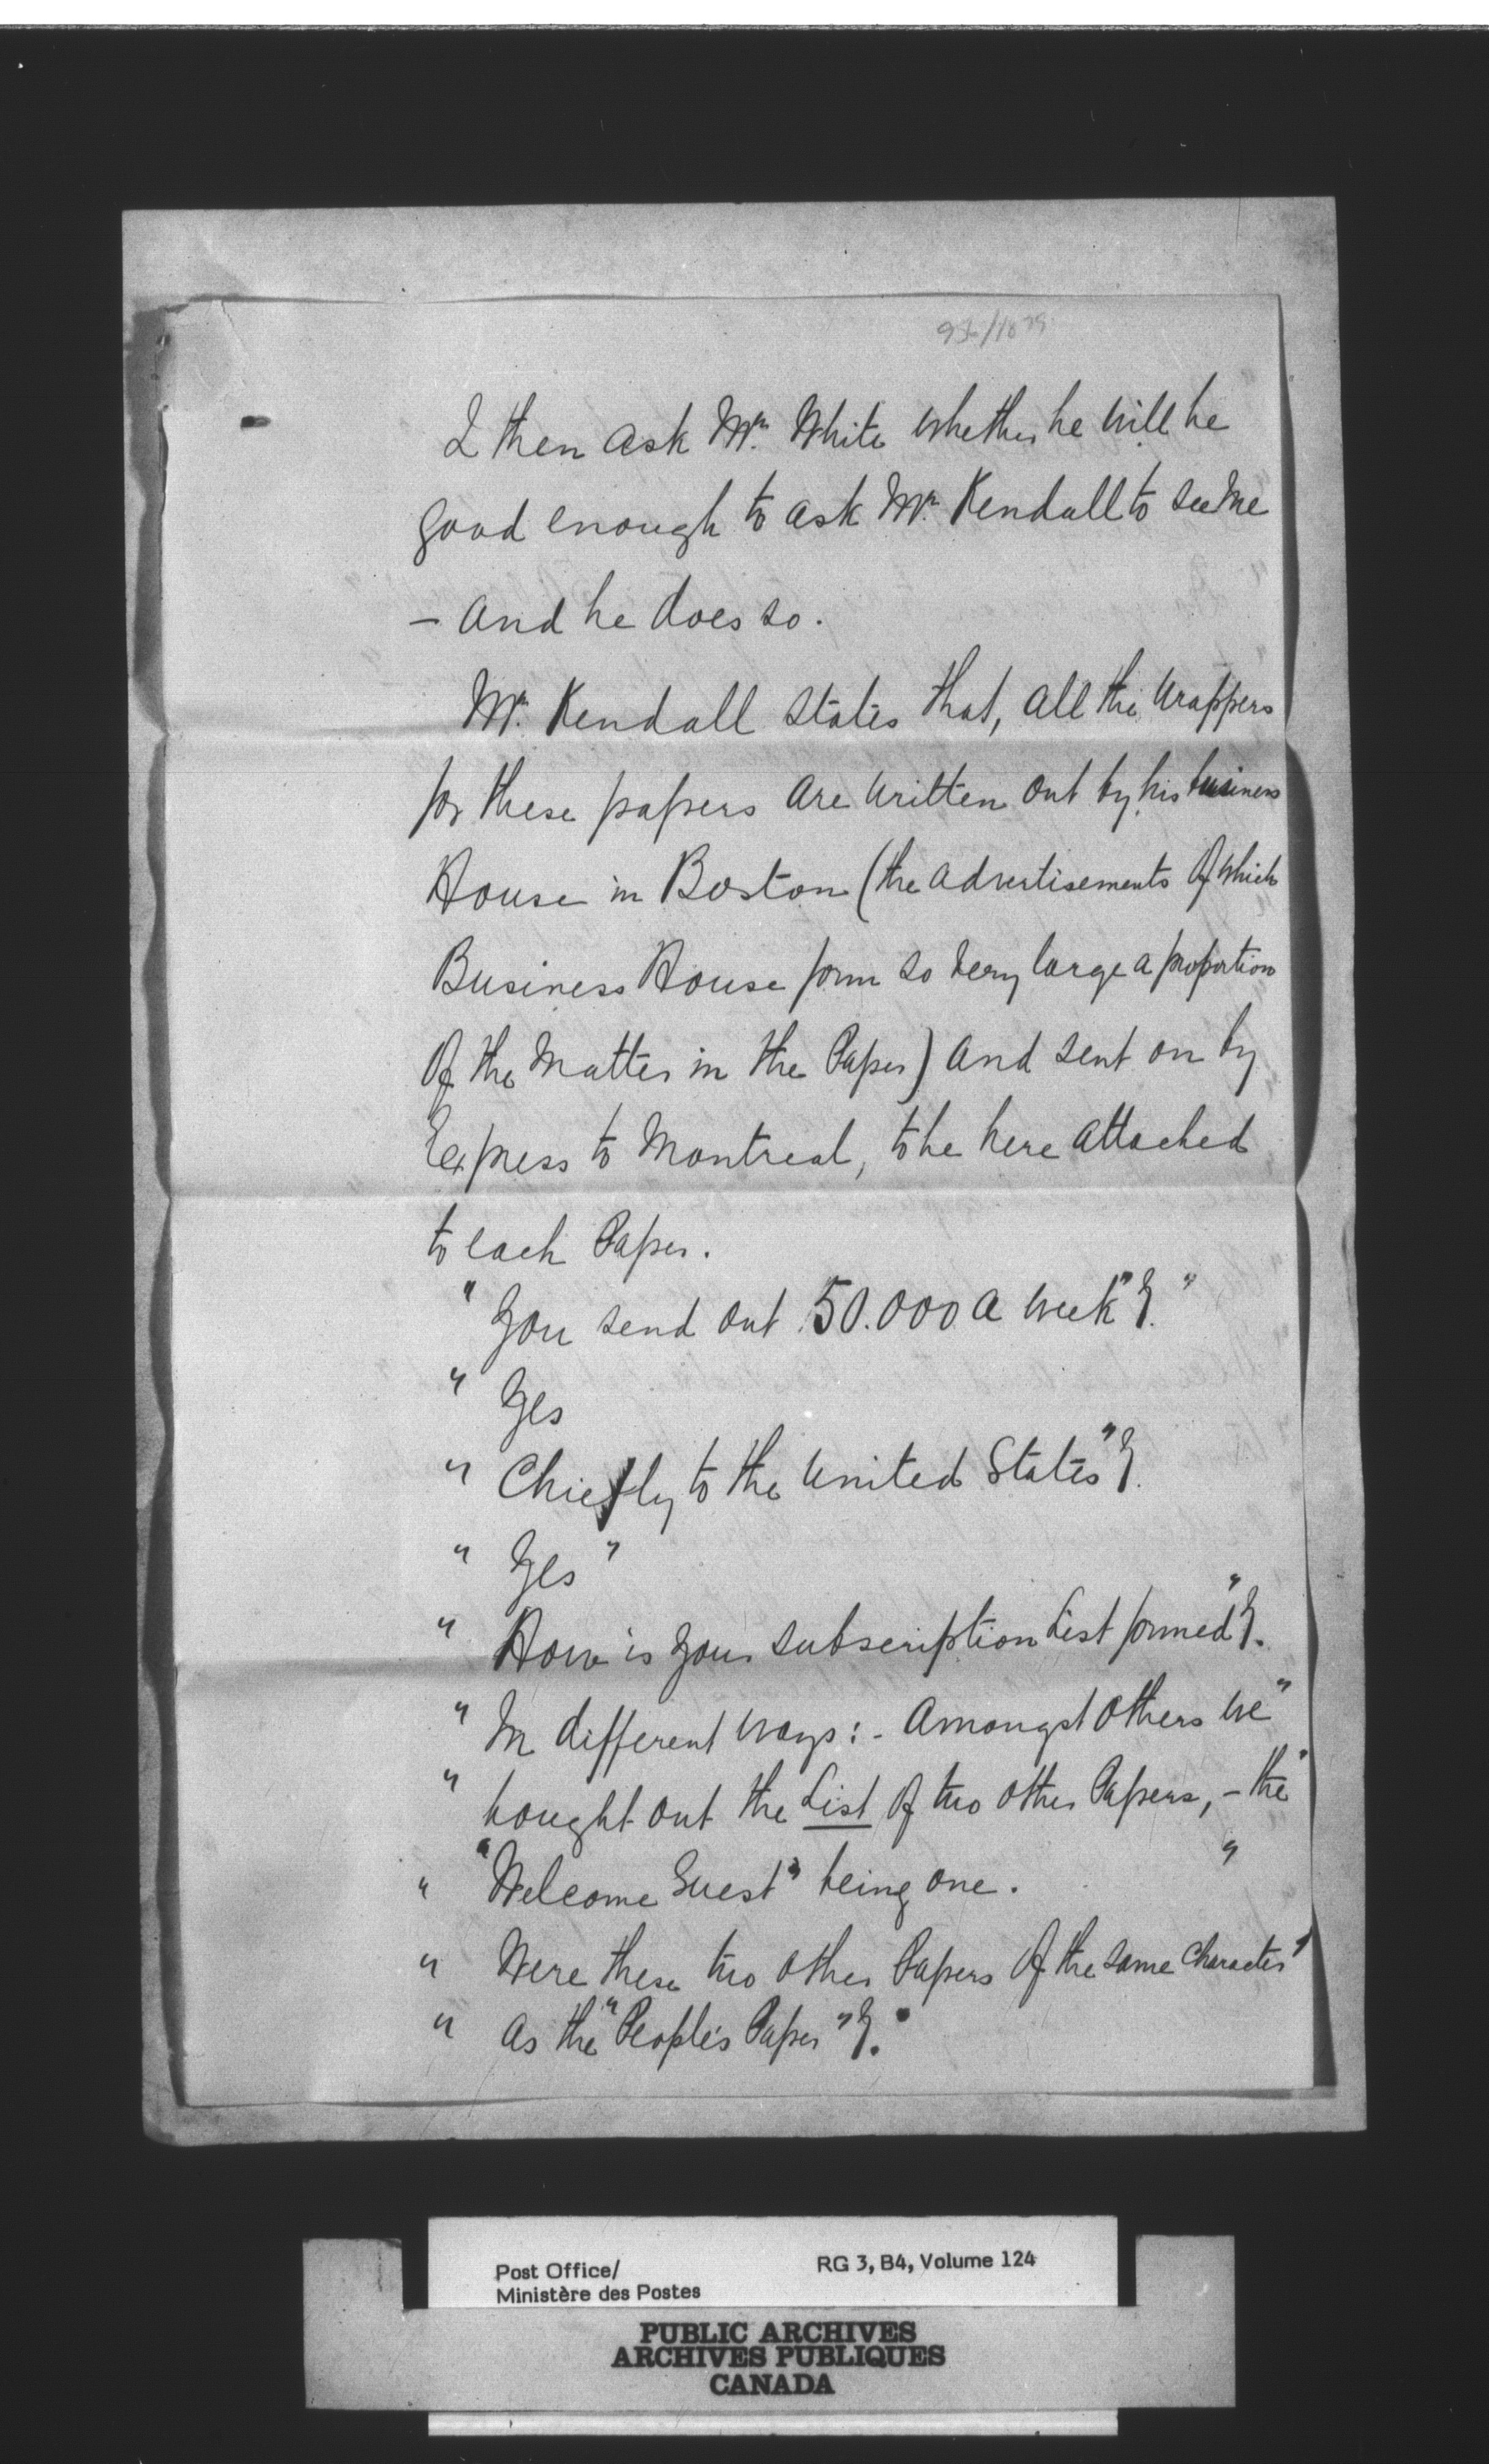 I then ask Mr. White whether he will be
good enough to ask Mr. Kendall to see me
— and he does so.
Mr. Kendall states that, all the wrappers
for these papers are written out by his business
House in Boston (the advertisements of which
Business House form so very large a proportion
of the matter in the Paper) and sent on by
Express to Montreal, to be here attached
to each Paper.
" You send out 50.000 a week"?"
" Yes
" Chiefly to the United States"?
" Yes "
" How is your subscription List formed"?
" In different ways:- Amongst others we "
" bought out the List of two other Papers, - the "
" "Welcome Guest" being one. "
" Were these two other Papers of the same character "
" as the "People's Paper"?"
Post Office/
Ministère des Postes
RG 3, B4, Volume 124
PUBLIC ARCHIVES
ARCHIVES PUBLIQUES
CANADA